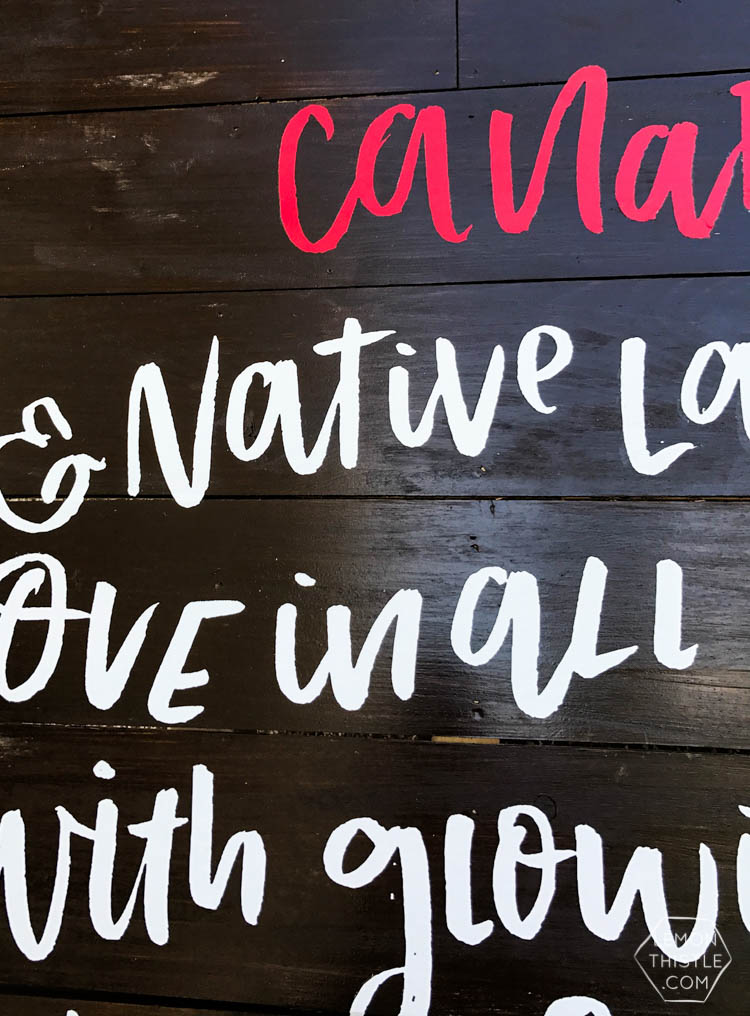 cana
& Native La
ove in all
with glowi
LEMON
THISTLE
.COM